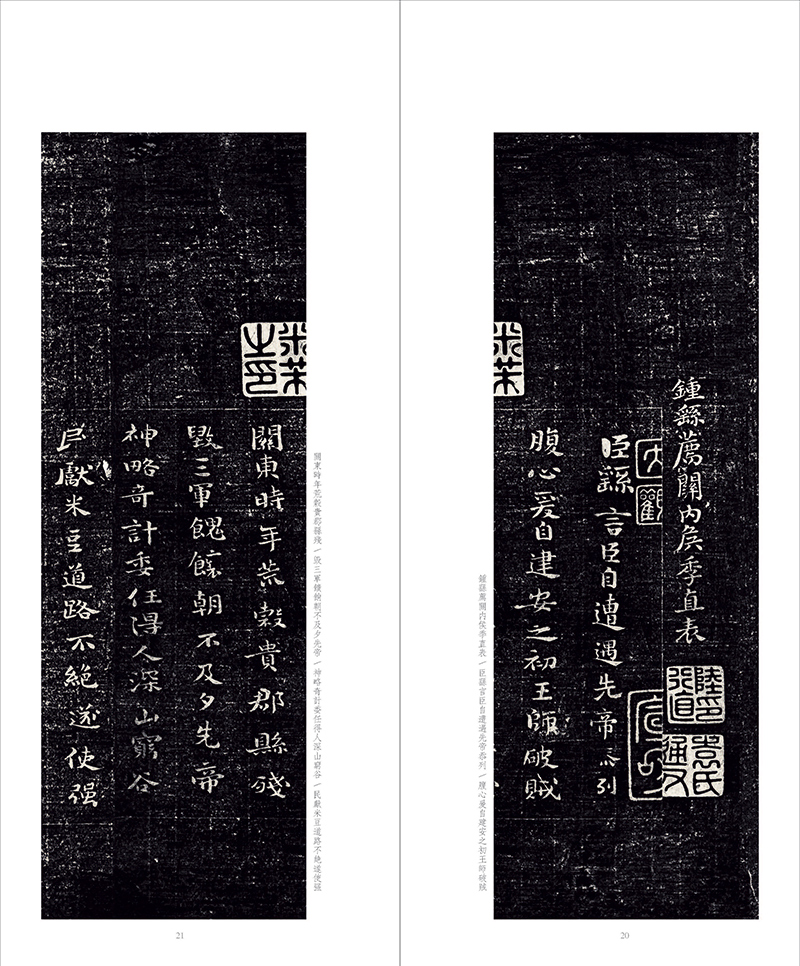 鍾繇薦關內侯季直表
陸行直印
袁氏通父
大觀
臣繇言臣自遭遇先帝忝列
腹心爰自建安之初王師破賊
米芾
鍾繇薦關內侯季直表｜臣繇言臣自遭遇先帝忝列｜腹心爰自建安之初王師破賊
20
關東時年荒穀貴郡縣殘｜毀三軍餽饟朝不及夕先帝｜神略奇計委任得人深山窮谷｜民獻米豆道路不絕遂使强
米芾之印
關東時年荒穀貴郡縣殘
毀三軍餽饟朝不及夕先帝
神略奇計委任得人深山窮谷
民獻米豆道路不絕遂使强
21